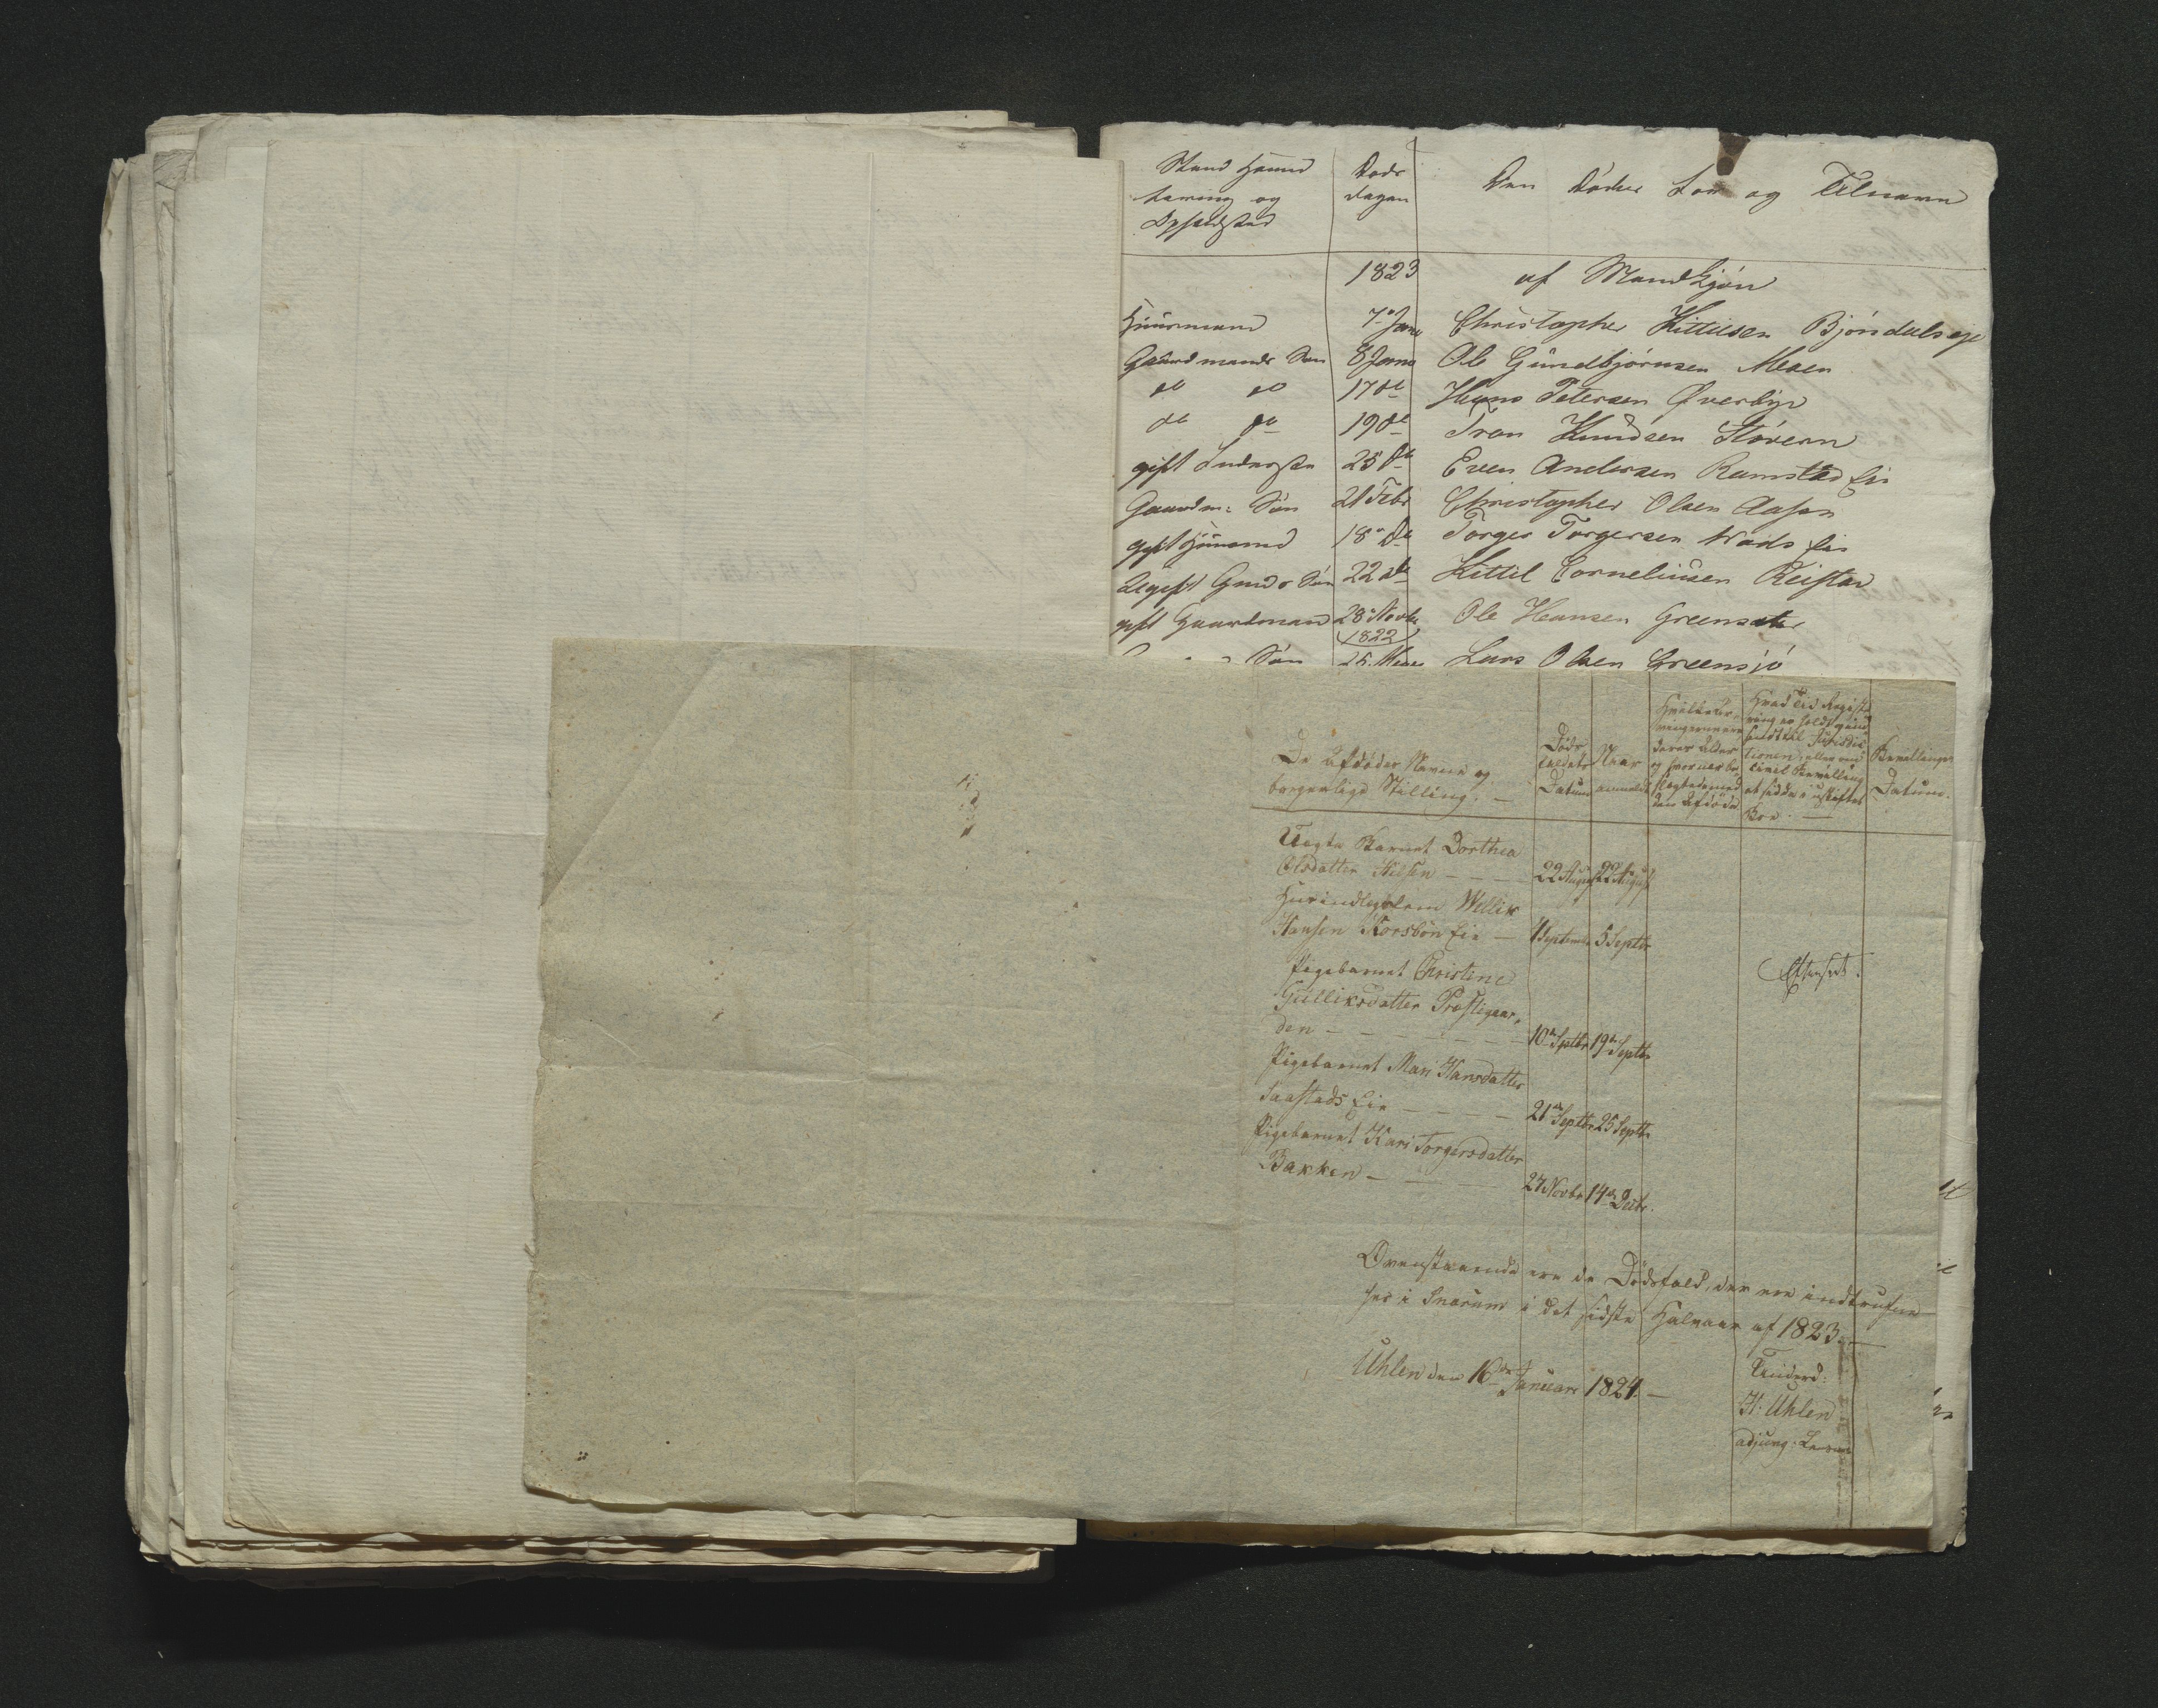 Stand Haand
tering og
Opholdsted
Døds
dagen
Den Dødes For og Tilnavn
1823 af Mandkjøn
Huusmand 7de Janu Christopher Kittilsen Bjøndalseje
Gaardmands Søn 8 Janu Ole Gundbjørnsen Moen
do do 17 do Hans Petersen Øverbye
do do 19 do Tron Knudsen Støveren
gift Inderste 25 do Even Andersen Ramstad Eie
Gaardm: Søn 21 Febr Christopher Olsen Aasen
gift Huusmd 18 do Torger Torgersen Wads Eie
Ugift Gmds Søn 22 do Kittil Corneliusen
gift Gaardmand 28 Novbr Ole Hansen Greensette
1822
Søn 25 Lars Olsen Greensjø
De Afdødes Navne og
borgerlige Stilling. —
Døds
faldets
Datum
Naar
anmeldt
Hvilke Ar-
vingerne ere
deres Alder
og hvor nær be-
slægtede med
den Afdøde
Hvad Tid Registe-
ring er holdt
Jurisdic-
tionen, eller om
Bevilling
at sidde i uskiftet
Boe. —
Bevillinges
Datum.
Uegte Barnet Dorthea
Olsdatter Nilsen — — — 22 August 22 August
Huusindlostem Wellik
Hansen Korsbøn Eie — 1 September 5 Septbr
Efterseet.
Pigebarnet Christine
Gulliksdatter Præstegaar-
den — — — — — 10de Septbr 19de Septbr
Pigebarnet Mari Hansdatter
Saastads Eie — — — — 21de Septbr 25 Septbr
Pigebarnet Kari Torgersdatter
Bakken — — — 27 Novbr 14de Decbr.
Ovenstaaende ere de Dødsfald, der ere indtrufne
her i Snarum i det sidste Halvaar af 1823. —
Uhlen den 16de Januar 1824. —
Underd:
H: Uhlen
adjung: Lensm